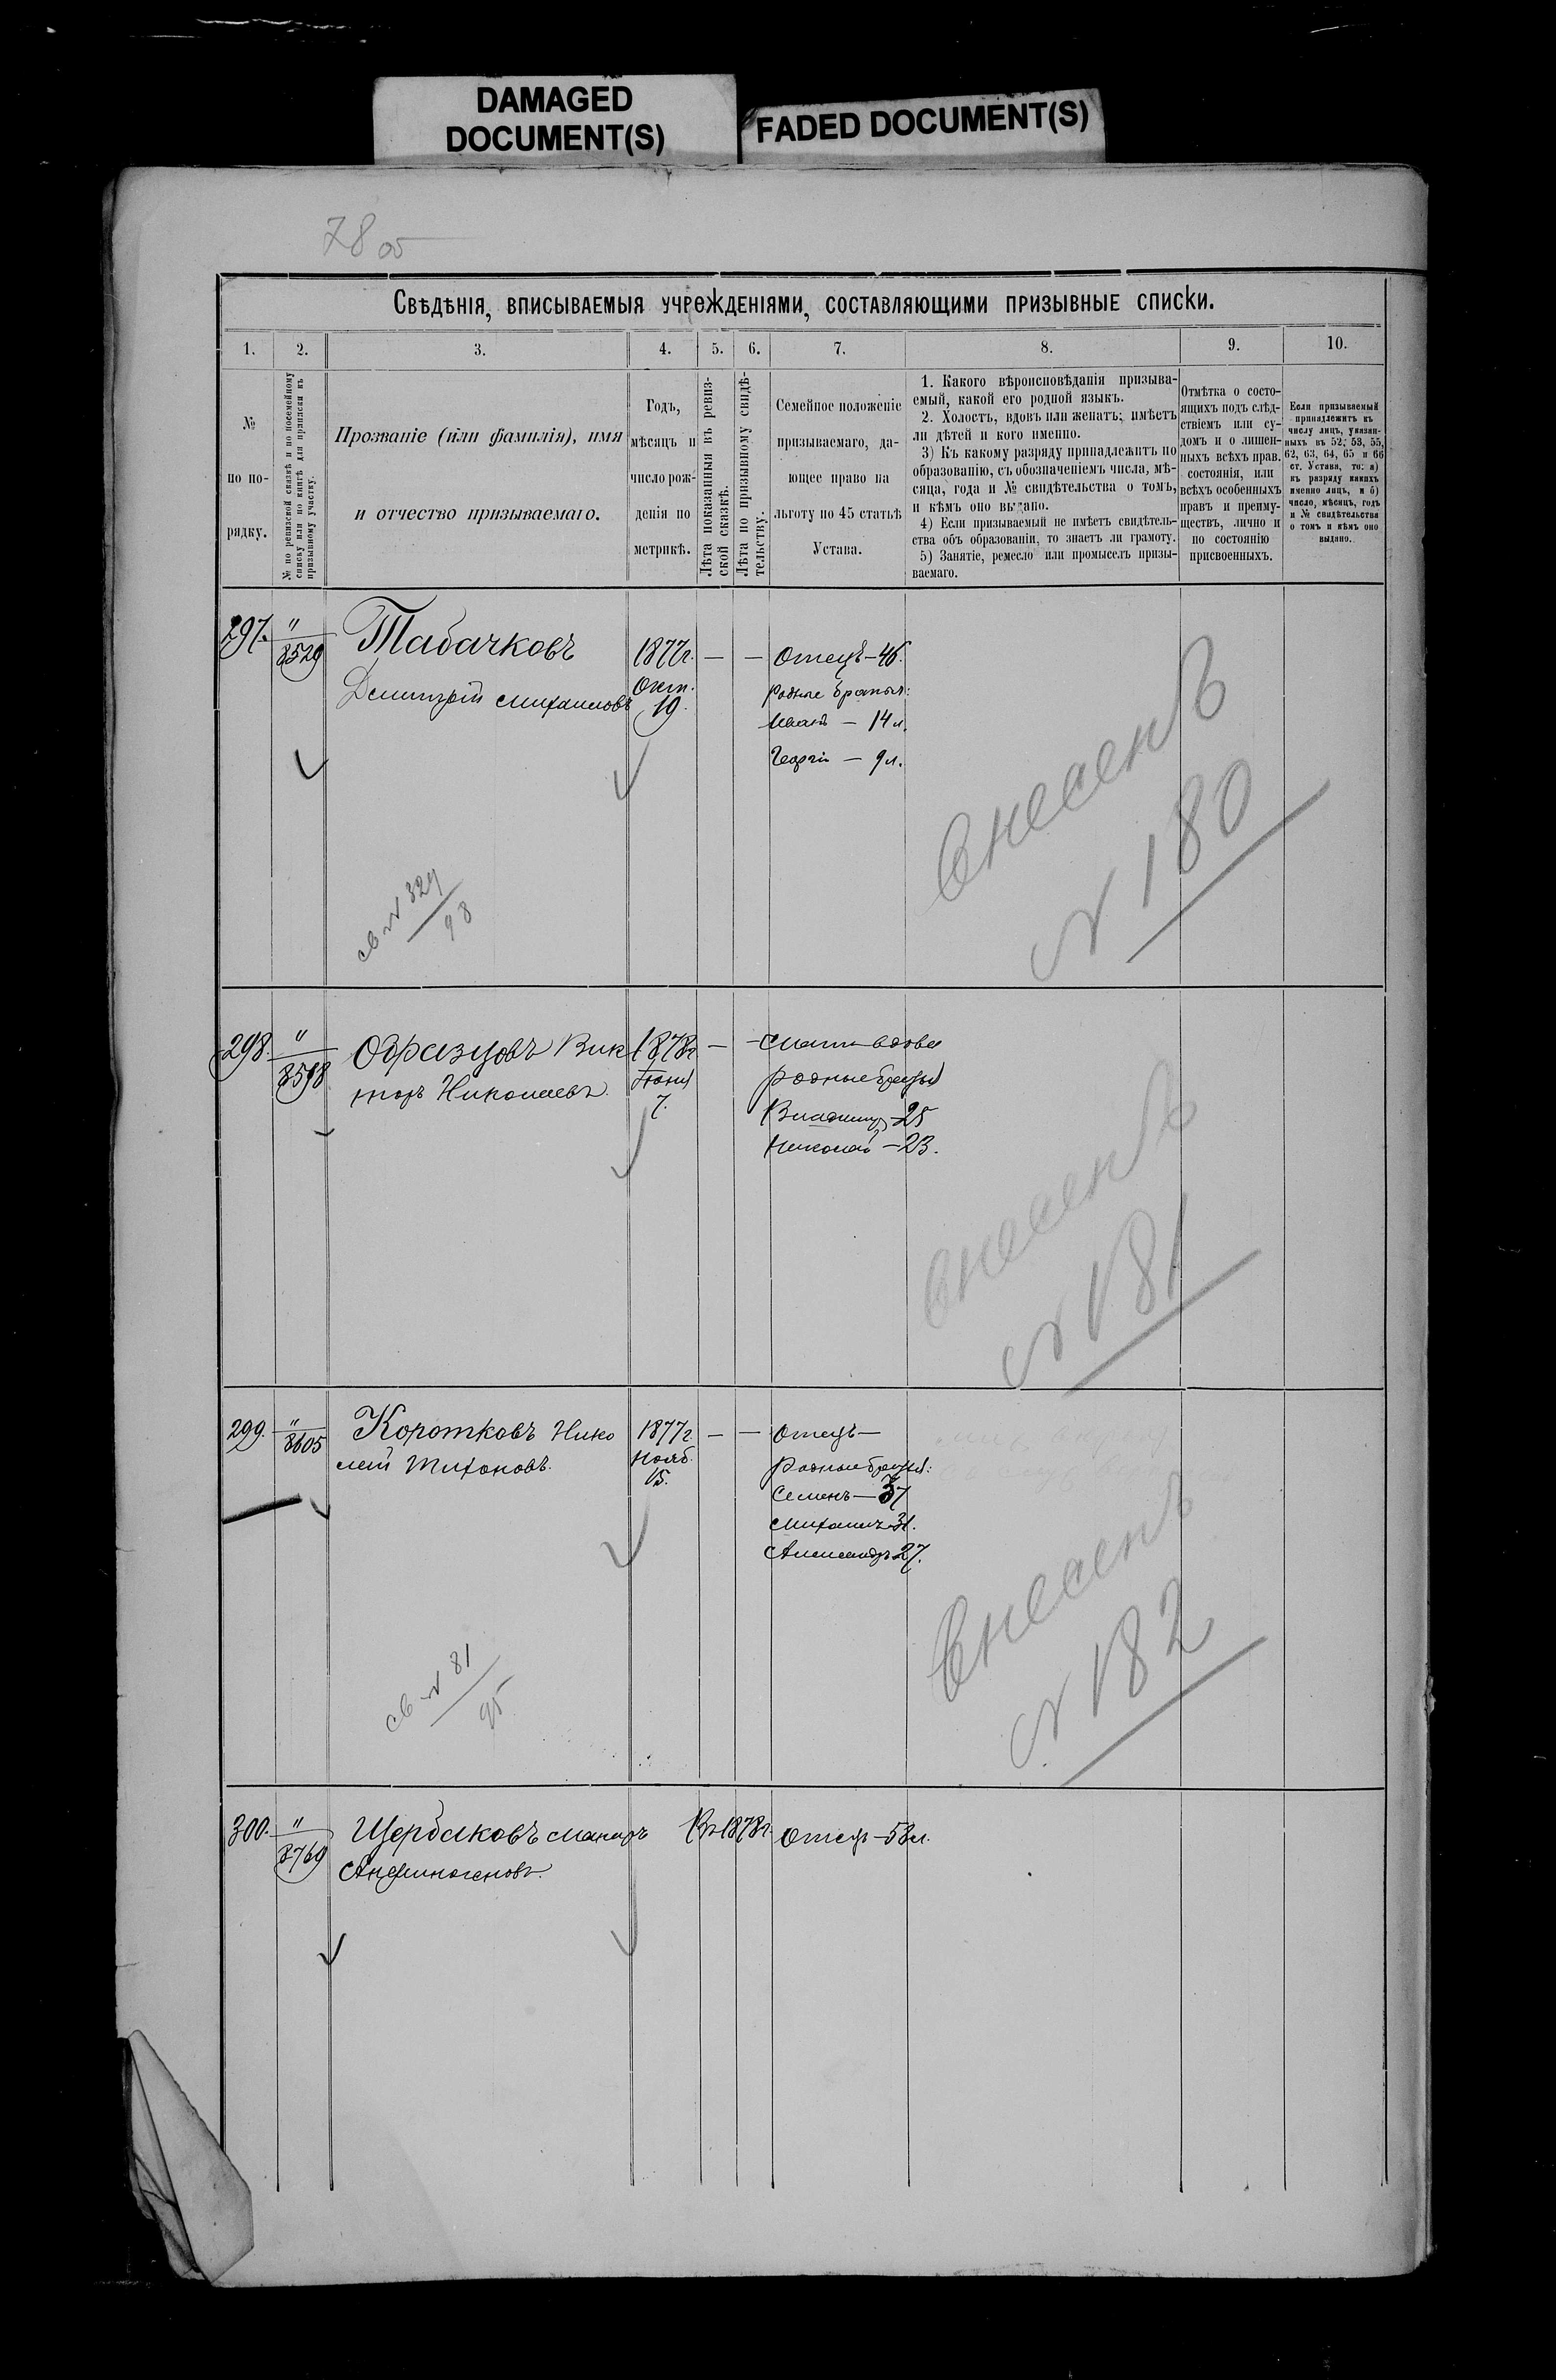 DAMAGED
DOCUMENT(S)
FADED DOCUMENT(S)
78 об
Свѣдѣнія, вписываемыя учрежденіями, составляющими призывные списки.
1. 2. 3. 4. 5. 6. 7. 8. 9. 10.
№
по по-
рядку.
№ по ревизской сказкѣ и по посемейному
списку или по книгѣ для приписки къ
призывному участку.
Прозваніе (или фамилія), имя
и отчество призываемаго.
Годъ,
мѣсяцъ и
число рож-
денія по
метрикѣ.
Лѣта показанныя въ ревиз-
ской сказкѣ.
Лѣта по призывному свидѣ-
тельству.
Семейное положеніе
призываемаго, да-
ющее право на
льготу по 45 статьѣ
Устава.
1. Какого вѣроисповѣданія призыва-
емый, какой его родной языкъ.
2. Холостъ, вдовъ или женатъ; имѣетъ
ли дѣтей и кого именно.
3) Къ какому разряду принадлежитъ по
образованію, съ обозначеніемъ числа, мѣ-
сяца, года и № свидѣтельства о томъ,
и кѣмъ оно выдано.
4) Если призываемый не имѣетъ свидѣтель-
ства объ образованіи, то знаетъ ли грамоту.
5) Занятіе, ремесло или промыселъ призы-
ваемаго.
Отмѣтка о состо-
ящихъ подъ слѣд-
ствіемъ или су-
домъ и о лишен-
ныхъ всѣхъ прав.
состоянія, или
всѣхъ особенныхъ
правъ и преиму-
ществъ, лично и
по состоянію
присвоенныхъ.
Если призываемый
принадлежитъ къ
числу лицъ, указан-
ныхъ въ 52, 53, 55,
62, 63, 64, 65 и 66
ст. Устава, то: а)
къ разряду какихъ
именно лицъ, и б)
число, мѣсяцъ, годъ
и № свидѣтельства
о томъ и кѣмъ оно
выдано.
297. "
8529
Табачковъ
Димитрій Михаиловъ
1877г.
Окт.
19.
— —
Отецъ — 46.
Родные братья:
Иванъ — 14 л.
Георгій — 9 л.
внесенъ
№ 180
св № 329
98
298. "
8598
Образцовъ Вик
торъ Николаевъ.
1878г
Іюня
7.
— —
Мать вдова
родные братья
Владиміръ — 25
Николай — 23.
внесенъ
№ 181
299. "
8605
Коротковъ Нико
лай Тихоновъ.
1877г.
Нояб.
15.
— —
Отецъ —
Родные братья:
Семенъ — 37
Михаилъ 31.
Александръ 27.
внесенъ
№ 182
св № 81
95
300. "
8769
Щербаковъ Макаръ
Анфиногеновъ.
1878г.
Отецъ — 53 л.